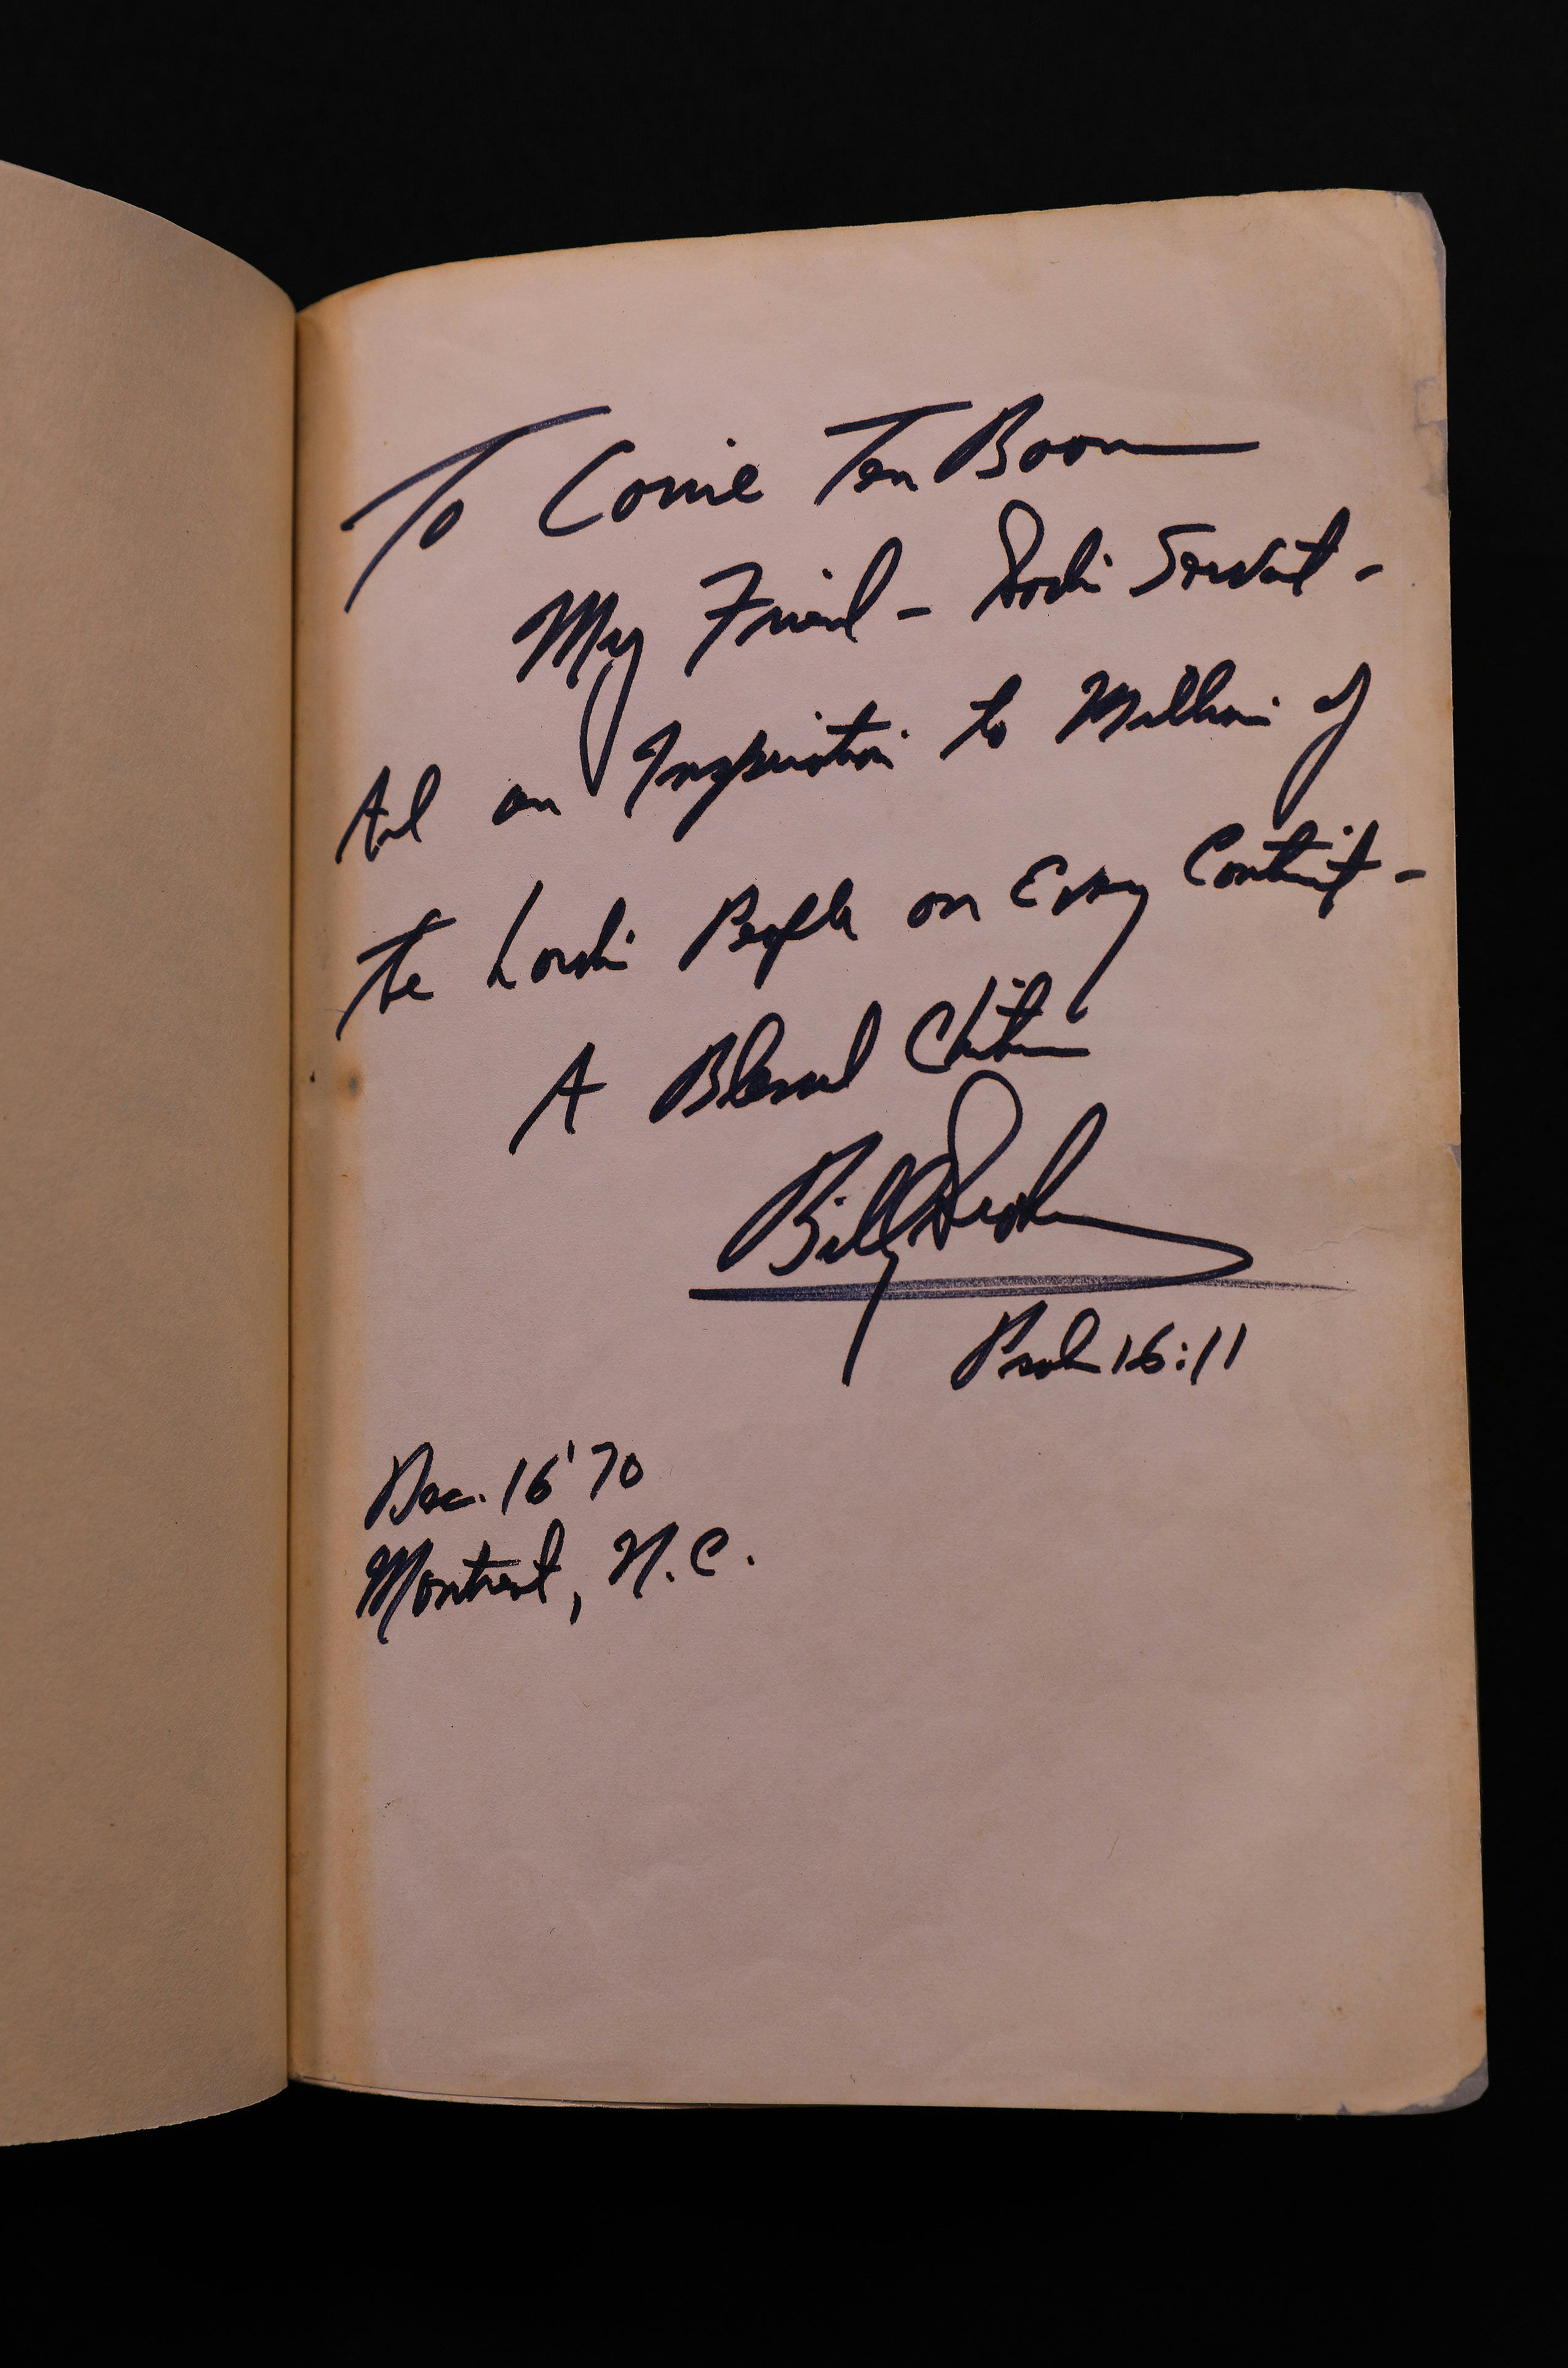 To Corrie Ten Boom
My Friend - God's Servant -
And an Inspiration to Millions of
the Lord's People on Every Continent -
A Blessed Christmas
Billy Graham
Psalm 16:11
Dec. 16 '70
Montreat, N.C.